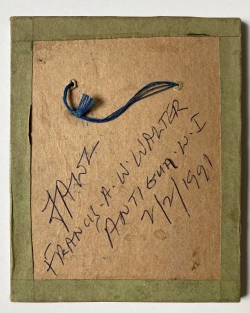 FRANCIS. A. W. WALTER
ANTIGUA. W. I
2/2/1991